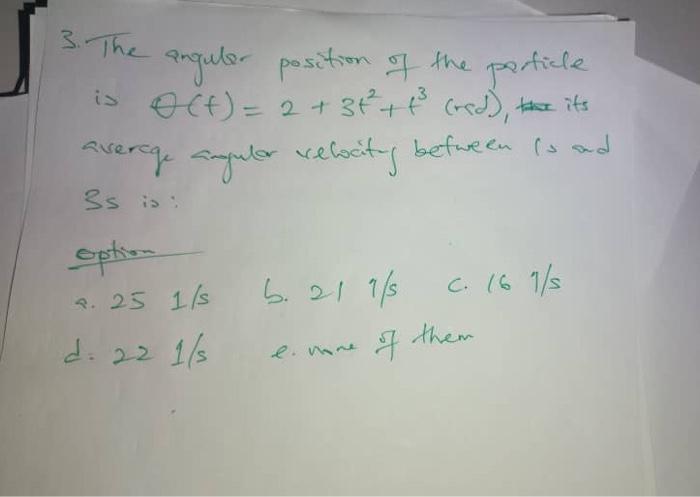 3. The angular position of the particle
is θ(t) = 2 + 3t² + t³ (rad), its
average angular velocity between 1s and
3s is:
option
a. 25 1/s b. 21 1/s c. 16 1/s
d. 22 1/s e. none of them